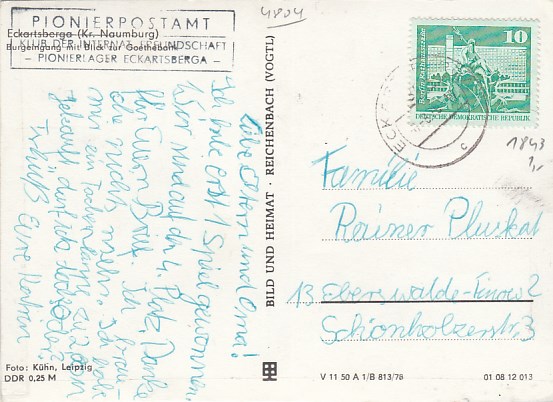 4804
PIONIERPOSTAMT
KLUB DER INTERNAT. FREUNDSCHAFT
- PIONIERLAGER ECKARTSBERGA -
Eckartsberga (Kr. Naumburg)
Burgeingang mit Blick zur Goethebank
Liebe Eltern und Oma!
Ich habe erst 1 Spiel gewonnen.
Wir sind auf den 4. Platz. Danke
für Euren Brief. Ich brau-
che nicht mehr. Ich habe
mir ein Taschenlampe zu
gekauft dürft
Tschüß Eure
Foto: Kühn, Leipzig
DDR 0,25 M
BILD UND HEIMAT · REICHENBACH (VOGTL)
10
Berlin, Rathausstraße
DEUTSCHE DEMOKRATISCHE REPUBLIK
ECK
1843
1,-
Familie
Rainer Pluskat
13 Eberswalde-Finow 2
Schönholzerstr. 3
V 11 50 A 1/B 813/76
01 08 12 013